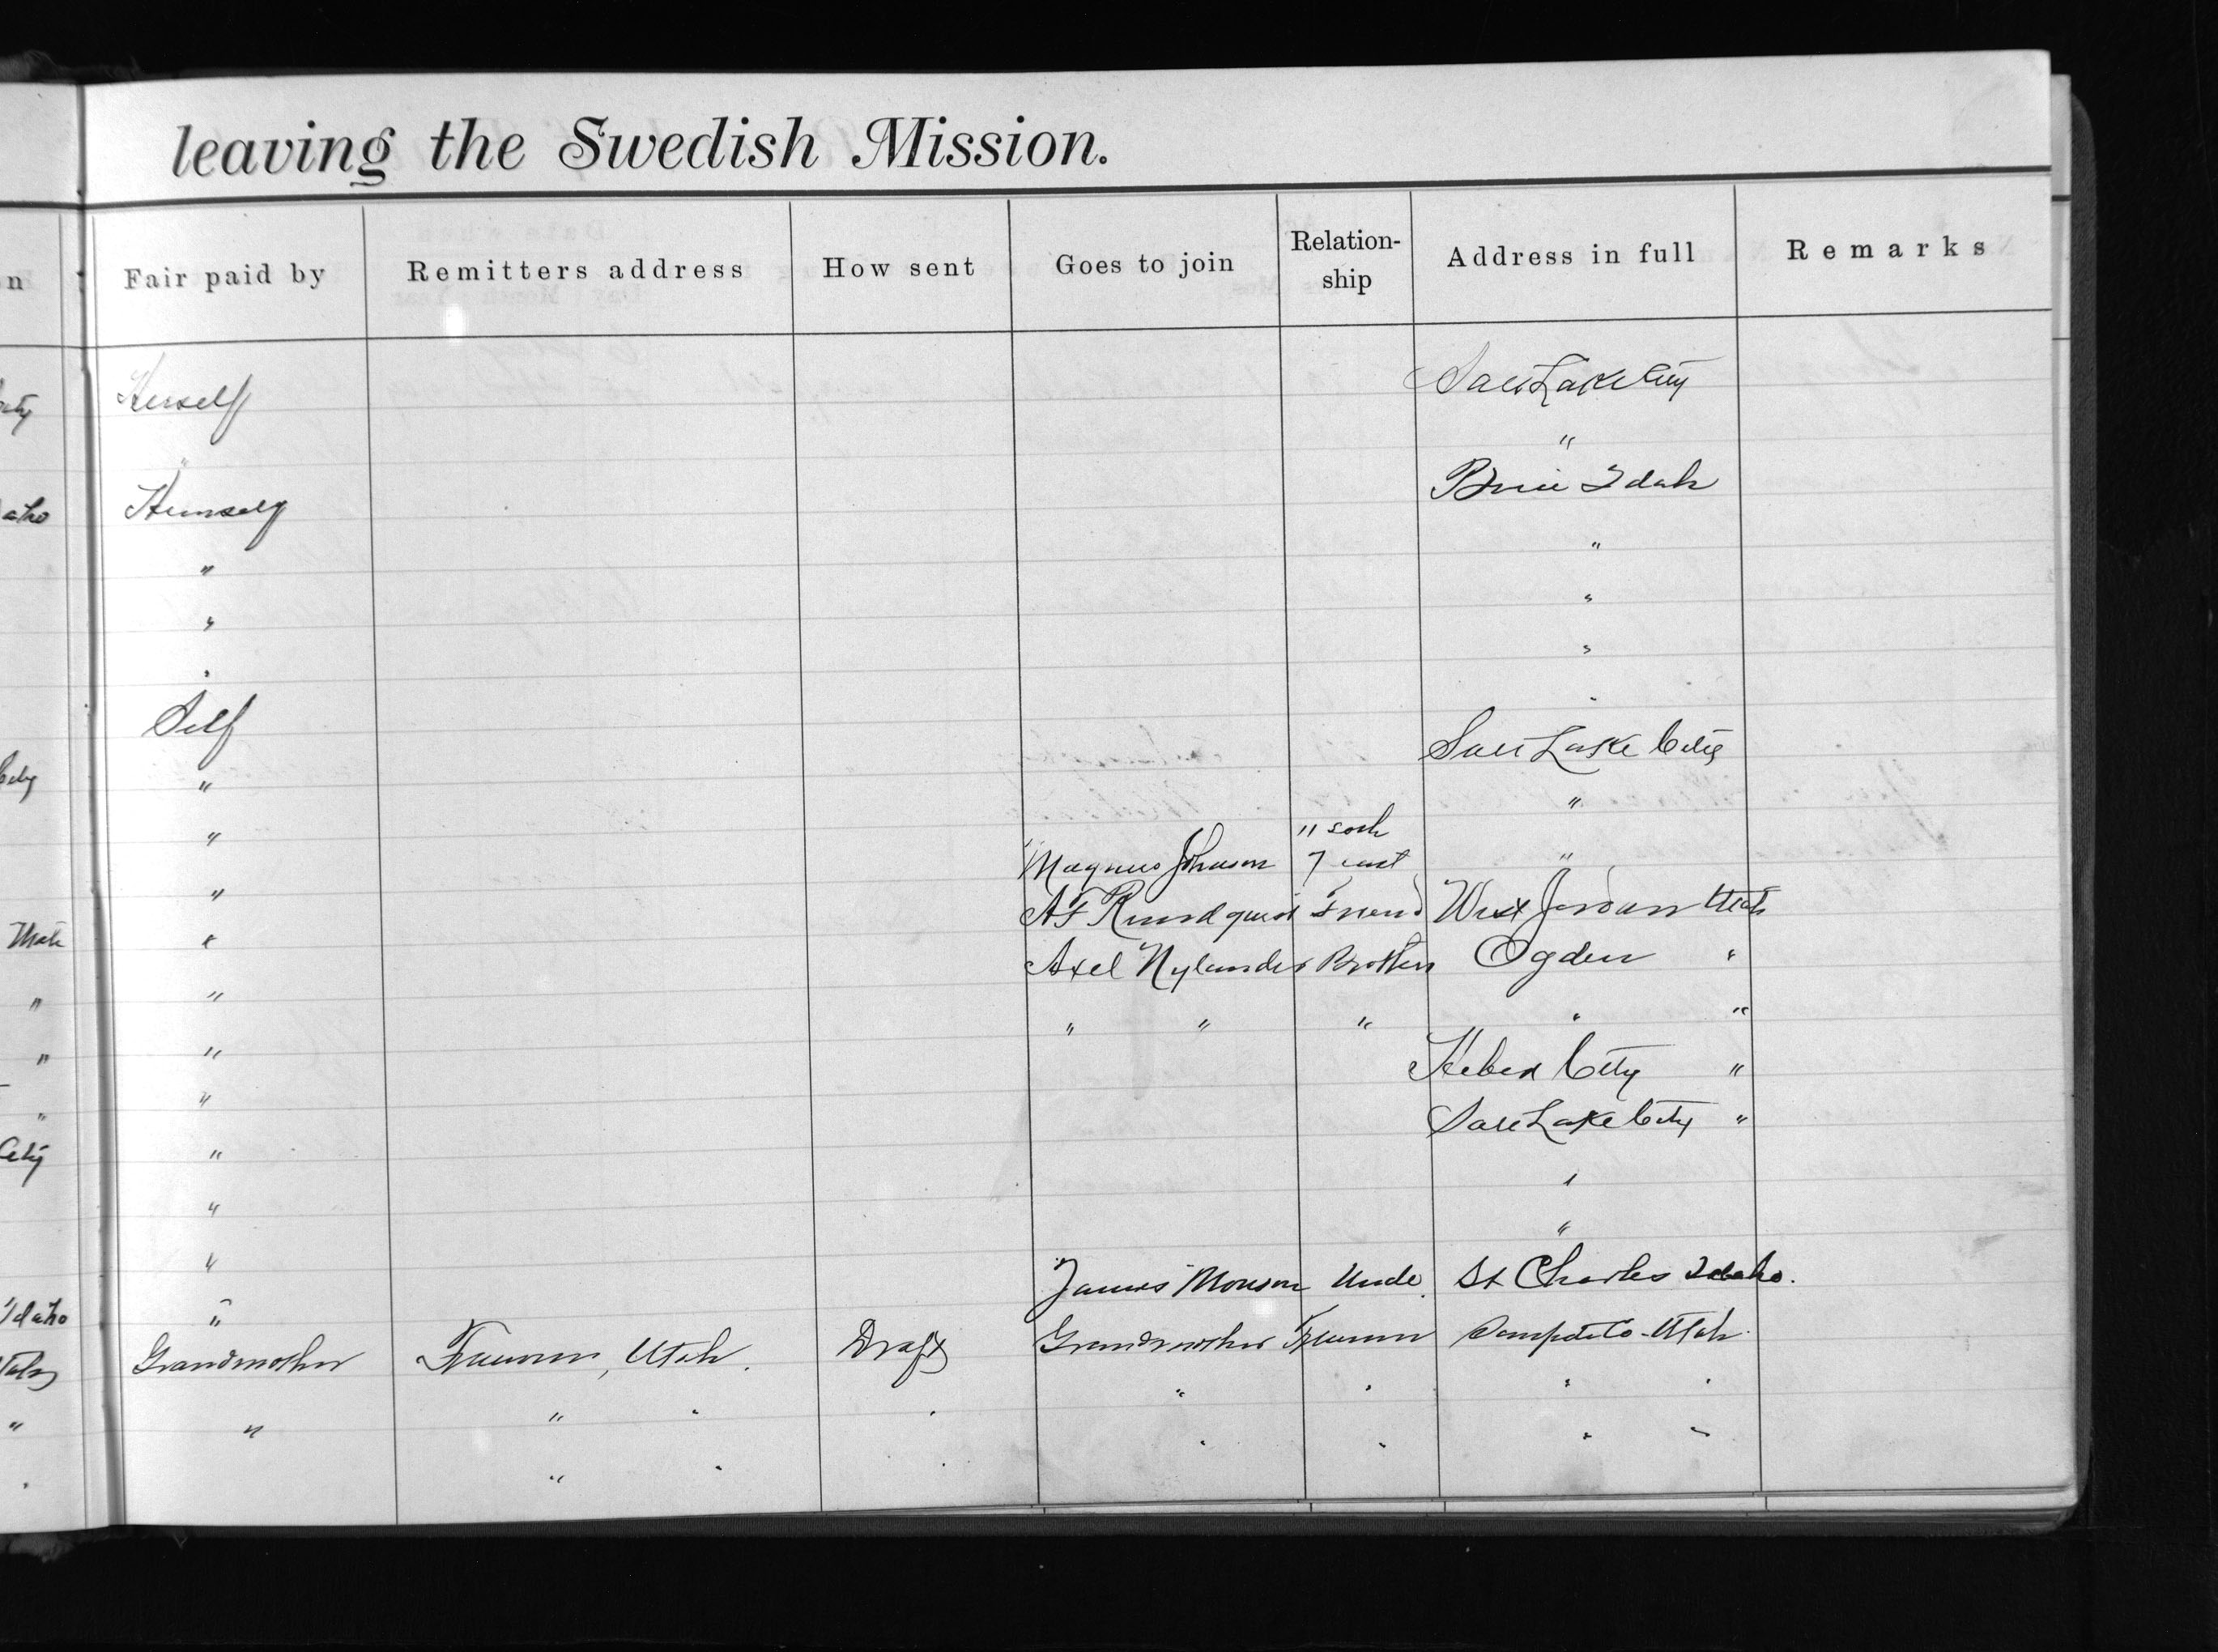 leaving the Swedish Mission.
n Fair paid by Remitters address How sent Goes to join Relation-ship Address in full Remarks
Herself Salt Lake City
" "
aho Himself Idah
" "
" "
" "
Self Salt Lake City
" "
" Magnus Johnson " south 7 east "
" A F Rundquist Friend West Jordan Utah
Utah " Axel Nylander Brother Ogden "
" " " " " " "
" " Heber City "
" " Salt Lake City "
City " "
" "
" James Monson Uncle St Charles Idaho.
Idaho "
Grandmother Utah. Draft Grandmother Utah.
" " " " " " " " "
" " " " " " "